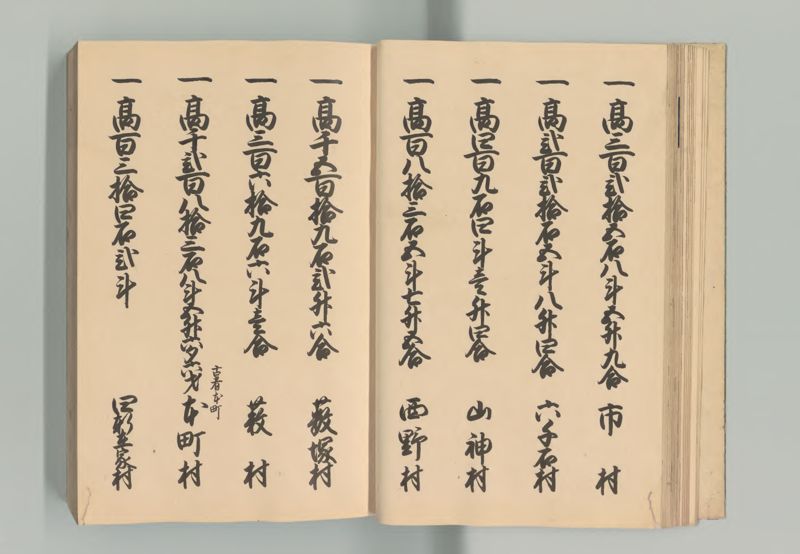 一高三百弐拾五石八斗五升九合 市村
一高弐百弐拾石五斗八升四合 六千石村
一高四百九石四斗壱升四合 山神村
一高百八拾三石五斗七升五合 西野村
一高千五百拾九石弐升六合 藪塚村
一高三百六拾九石六斗壱合 萩村
古者本町
一高千弐百八拾三石八斗五升六合 本町村
一高百三拾四石弐斗 村